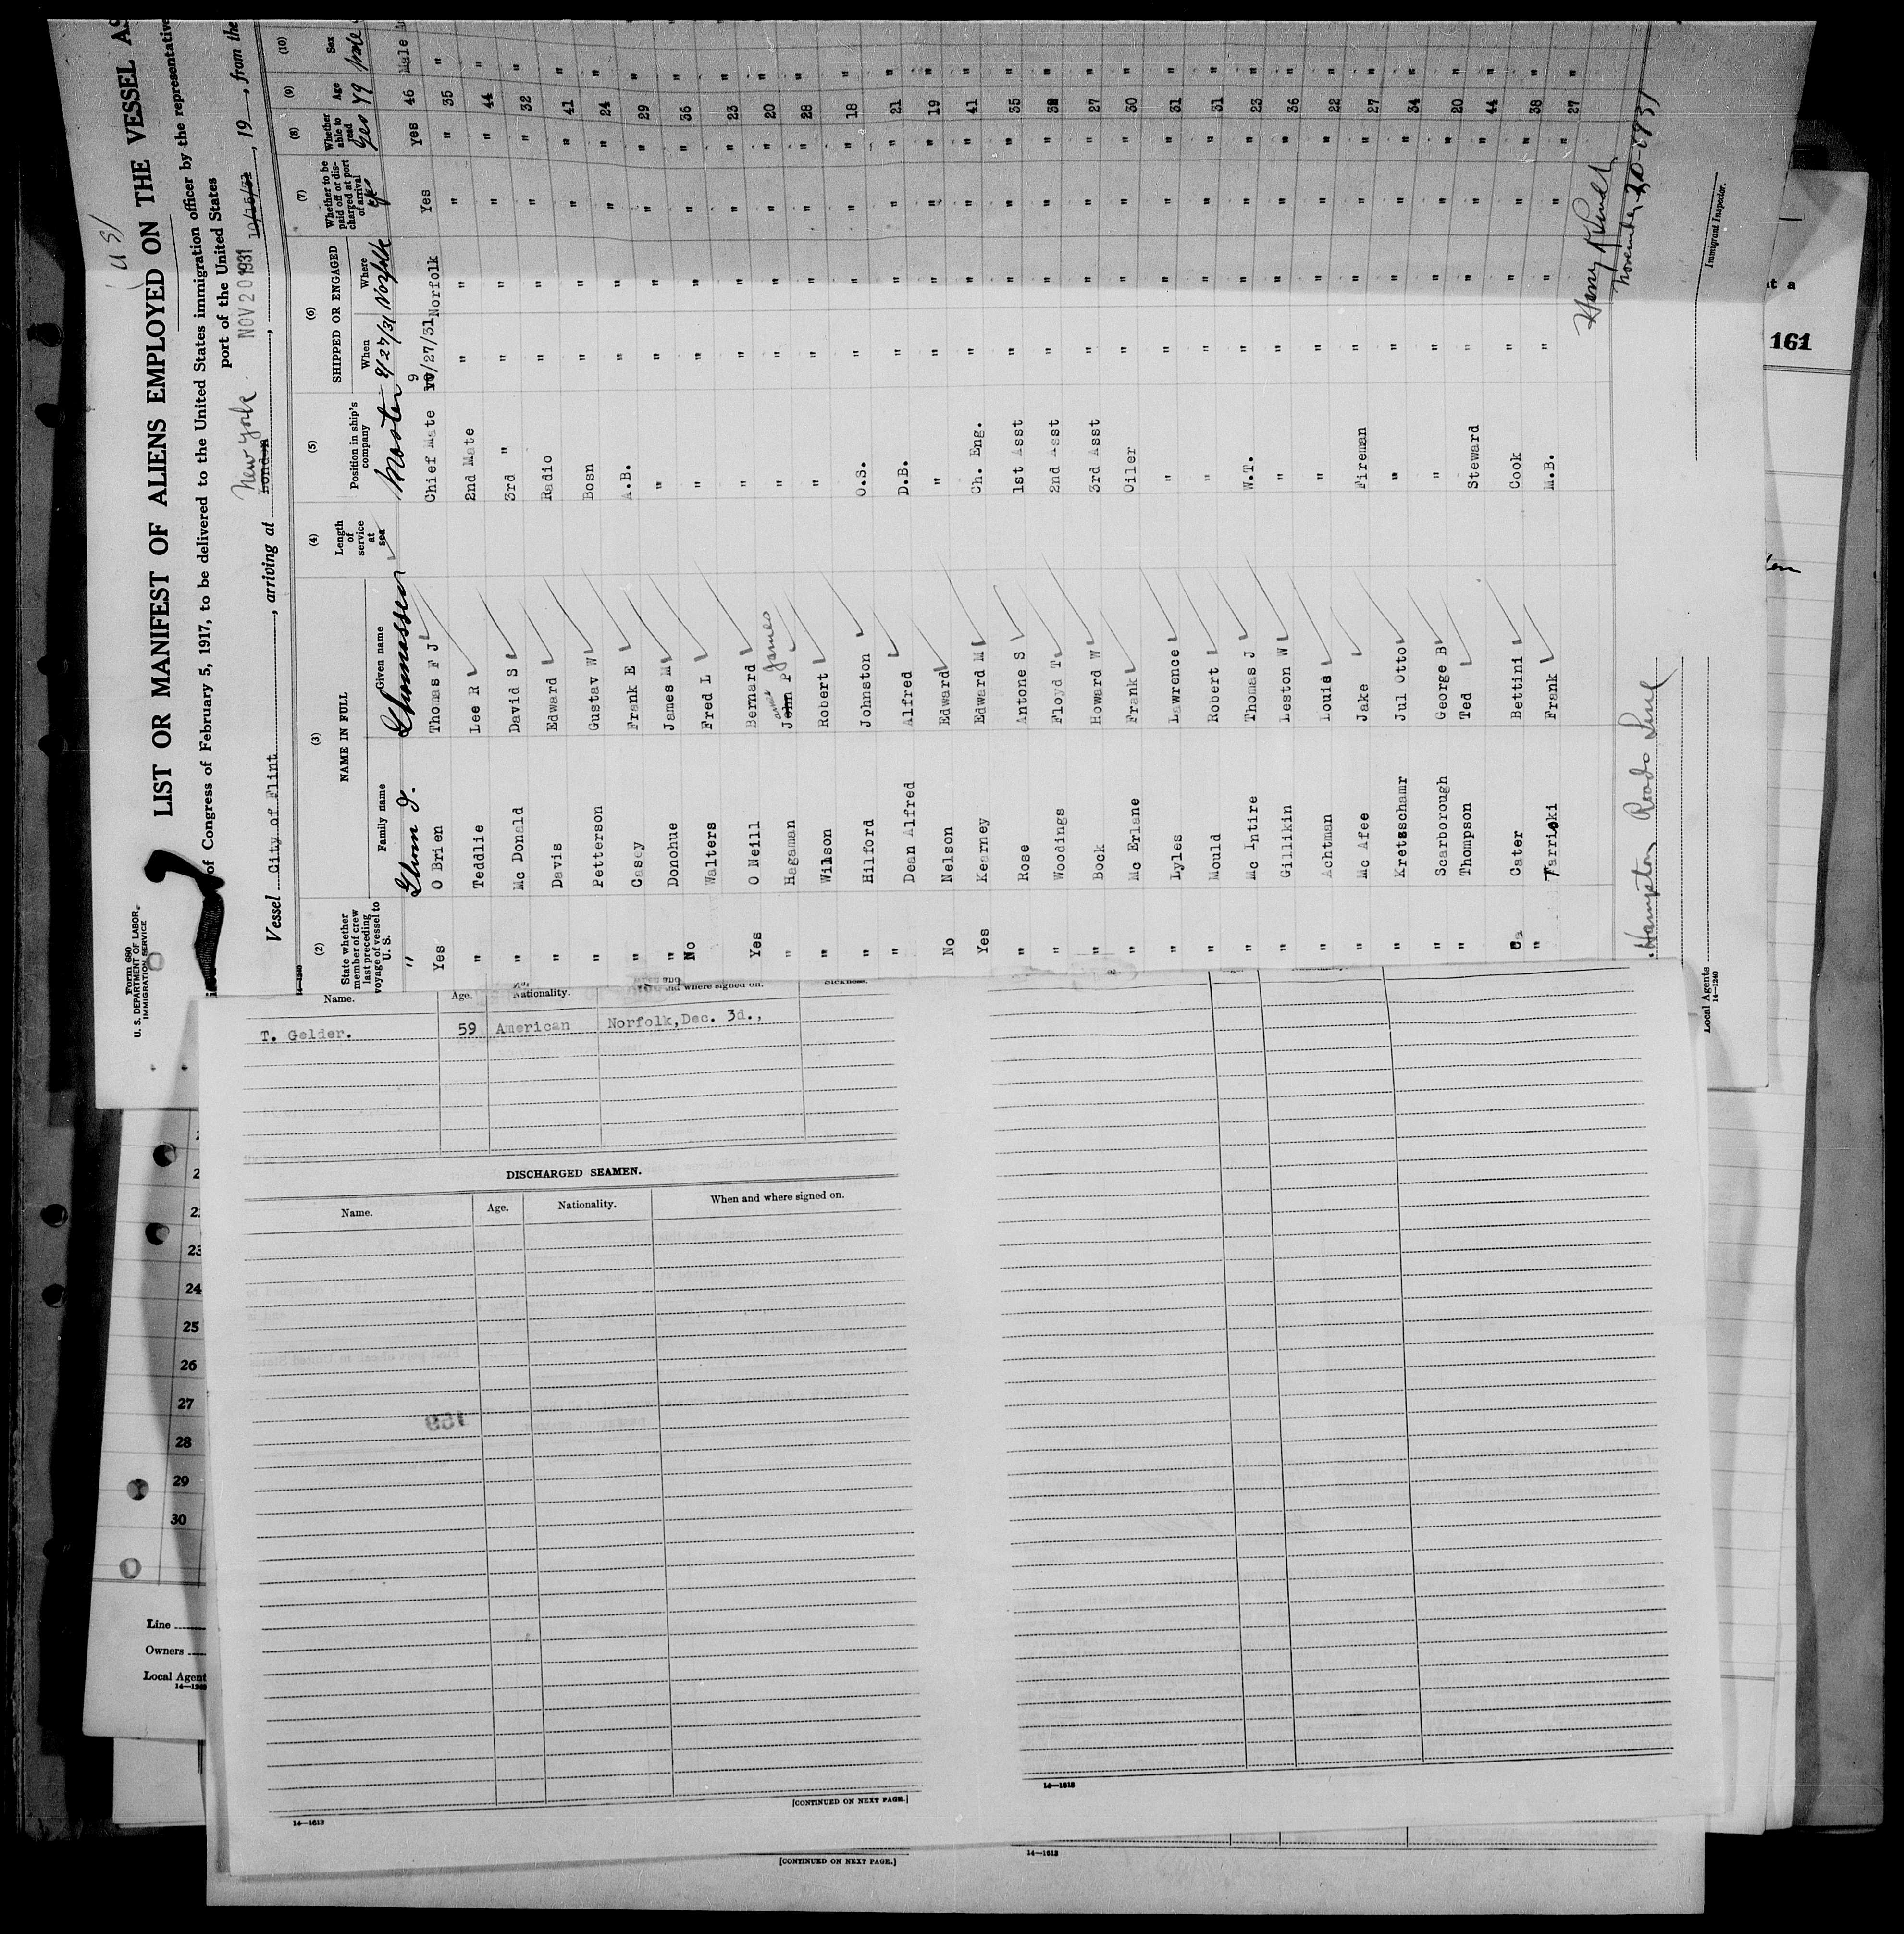 (U S)
Form 680
U. S. DEPARTMENT OF LABOR
IMMIGRATION SERVICE
LIST OR MANIFEST OF ALIENS EMPLOYED ON THE VESSEL AS
of Congress of February 5, 1917, to be delivered to the United States immigration officer by the representative
port of the United States
Vessel City of Flint, arriving at London New York, NOV 20 1931 10/26/32, 19, from the
14—1240
(2) (3) (4) (5) (6) (7) (8) (9) (10)
State whether member of crew last preceding voyage of vessel to U. S. NAME IN FULL Family name Given name Length of service at sea Position in ship's company SHIPPED OR ENGAGED When Where Whether to be paid off or discharged at port of arrival Whether able to read Age Sex
" Master 9/27/31 Norfolk yes Yes 49 Male
Yes O Brien Thomas F J Chief Mate 9 10/27/31 Norfolk Yes Yes 46 Male
" Teddlie Lee R 2nd Mate " " " " 35 "
" Mc Donald David S 3rd " " " " " 44 "
" Davis Edward Radio " " " " 32 "
" Petterson Gustav W Bosn " " " " 41 "
" Casey Frank E A.B. " " " " 24 "
" Donohue James M " " " " " 29 "
" No Walters Fred L " " " " " 36 "
Yes O Neill Bernard " " " " " 23 "
" Hagaman John P James " " " " " 20 "
" Wilson Robert " " " " " 28 "
" Hilford Johnston O.S. " " " " 18 "
" Dean Alfred Alfred D.B. " " " " 21 "
No Nelson Edward " " " " " 19 "
Yes Kearney Edward M Ch. Eng. " " " " 41 "
" Rose Antone S 1st Asst " " " " 35 "
" Woodings Floyd T 2nd Asst " " " " 32 "
" Bock Howard W 3rd Asst " " " " 27 "
" Mc Erlane Frank Oiler " " " " 30 "
" Lyles Lawrence " " " " " 31 "
" Mould Robert " " " " " 31 "
" Mc Intire Thomas J W.T. " " " " 23 "
" Gillikin Leston W " " " " " 36 "
" Achtman Louis " " " " " 22 "
" Mc Afee Jake Fireman " " " " 27 "
" Kretzschamr Jul Otto " " " " " 34 "
" Scarborough George B " " " " " 20 "
" Thompson Ted Steward " " " " 44 "
Cater Bettini Cook " " " " 38 "
" Frank M.B. " " " " 27 "
November 20-1931
Immigrant Inspector.
Hampton Roads Line
Local Agents
14—1240
161
Name. Age. Nationality. and where signed on. Sickness.
T. Gelder. 59 American Norfolk, Dec. 3d.,
DISCHARGED SEAMEN.
Name. Age. Nationality. When and where signed on.
23
24
25
26
27
28
29
30
Line
Owners
Local Agent
[CONTINUED ON NEXT PAGE.]
14—1613
14—1613
[CONTINUED ON NEXT PAGE.]
14—1613